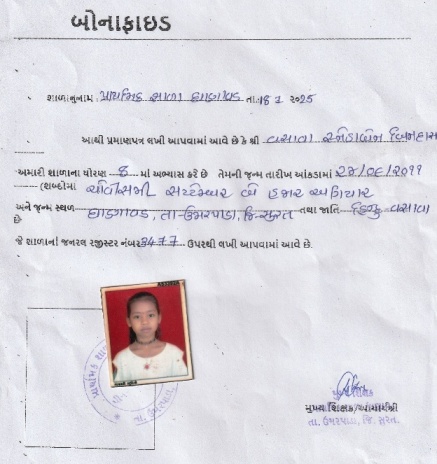 બોનાફાઇડ
શાળાનુનામ : પ્રાથમિક શાળા ઘાણાવડ તા. 18 1 ૨૦25
આથી પ્રમાણપત્ર લખી આપવામાં આવે છે કે શ્રી વસાવા સ્નેહાબેન
અમારી શાળાના ધોરણ 8 માં અભ્યાસ કરે છે તેમની જન્મ તારીખ આંકડામાં
(શબ્દોમાં સપ્ટેમ્બર બે હજાર અગિયાર
અને જન્મ સ્થળ તા-ઉમરપાડા, જિ-સુરત તથા જાતિ હિન્દુ વસાવા
છે.
જે શાળાનાં જનરલ રજીસ્ટર નંબર 3477 ઉપરથી લખી આપવામાં આવે છે.
પ્રાથમિક શા
તા. ઉમરપાડા
મુખ્ય શિક્ષક/આચાર્યશ્રી
તા. ઉમરપાડા, જિ. સુરત.